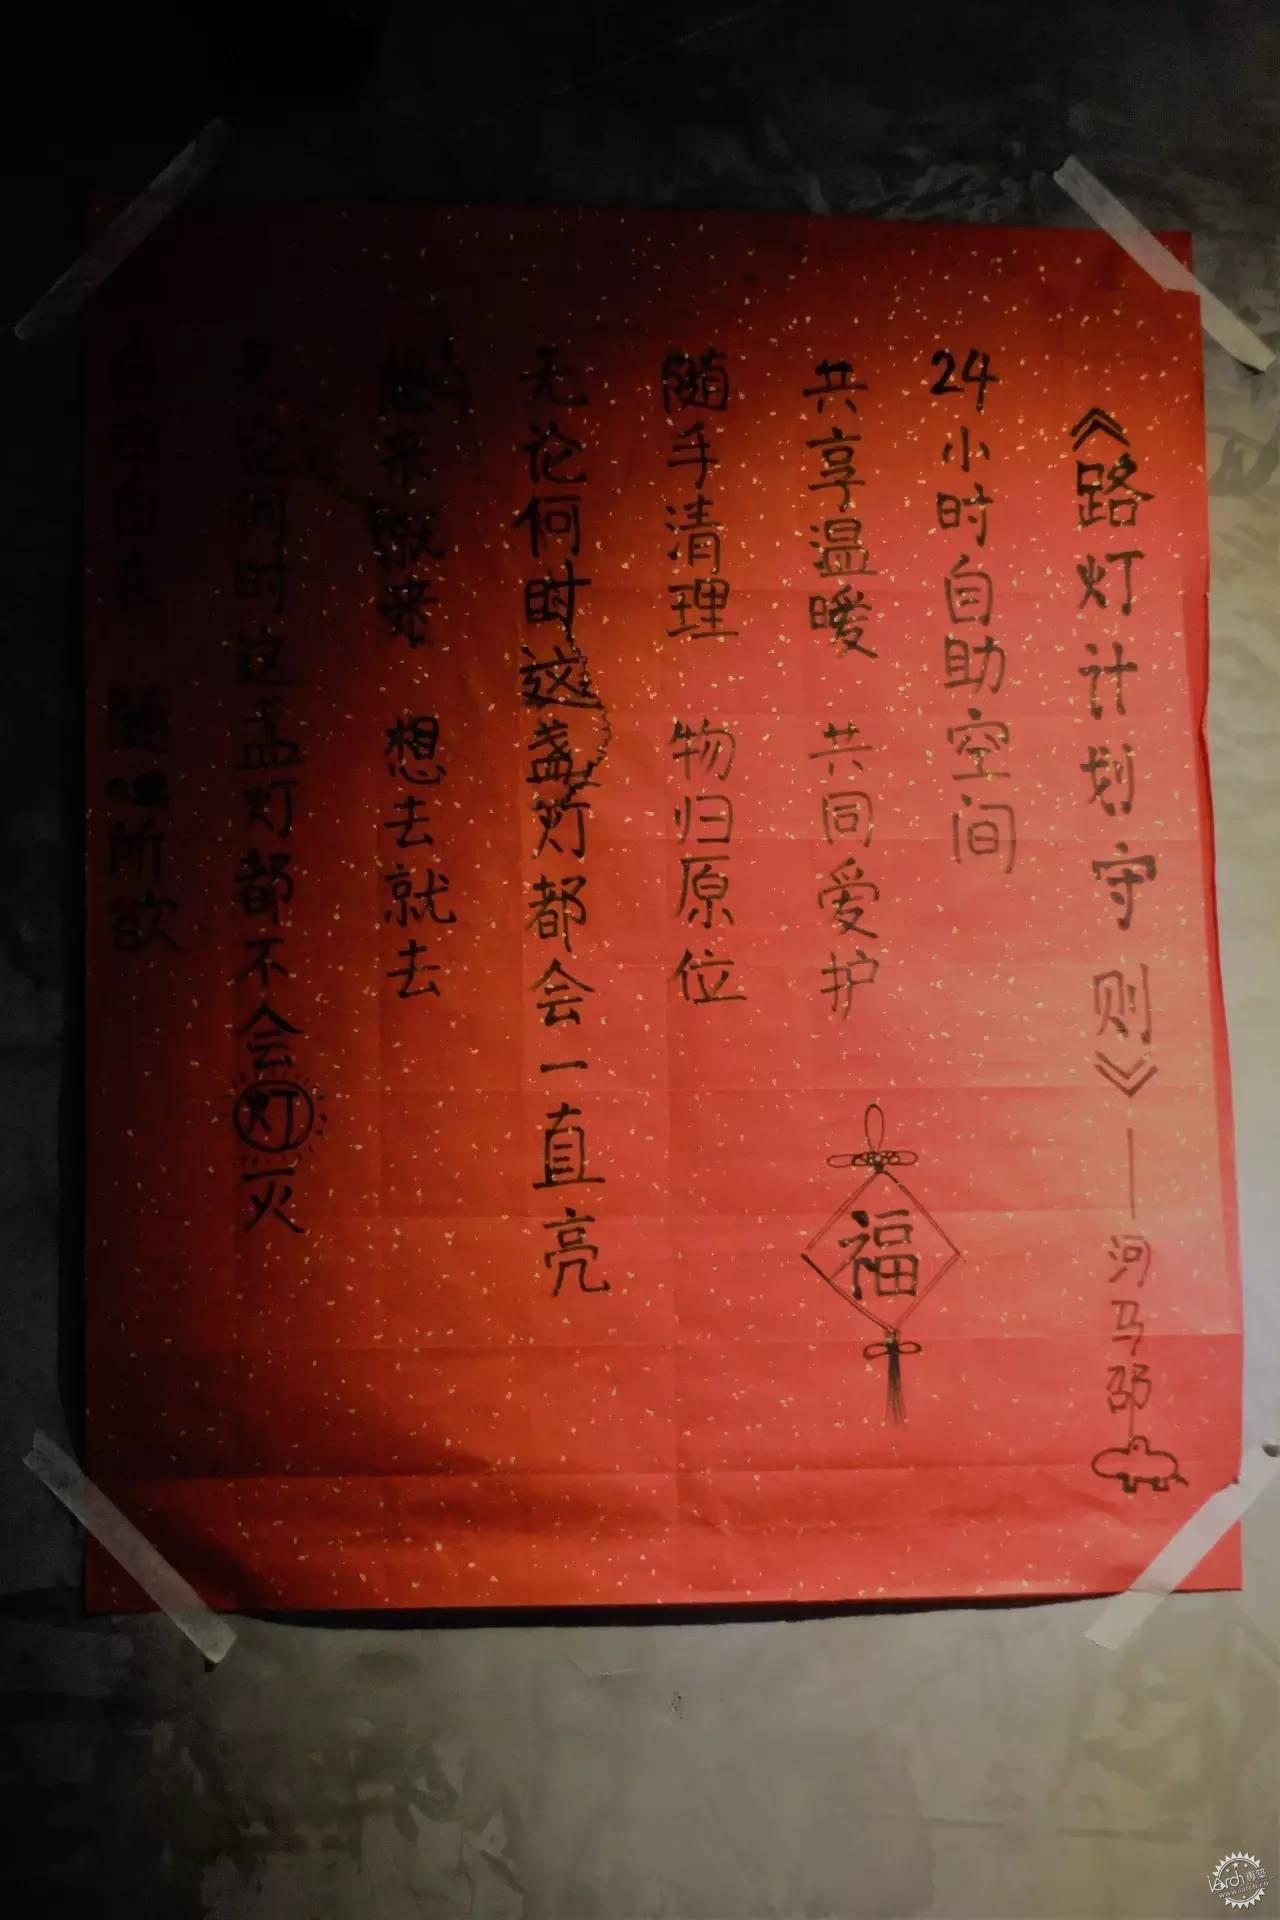 《路灯计划守则》——河马邵
24小时自助空间
共享温暖 共同爱护
福
随手清理 物归原位
无论何时这盏灯都会一直亮
想来就来 想去就去
无论何时这盏灯都不会灯火
自由自在 随心所欲
iarch專築
www.iarch.cn